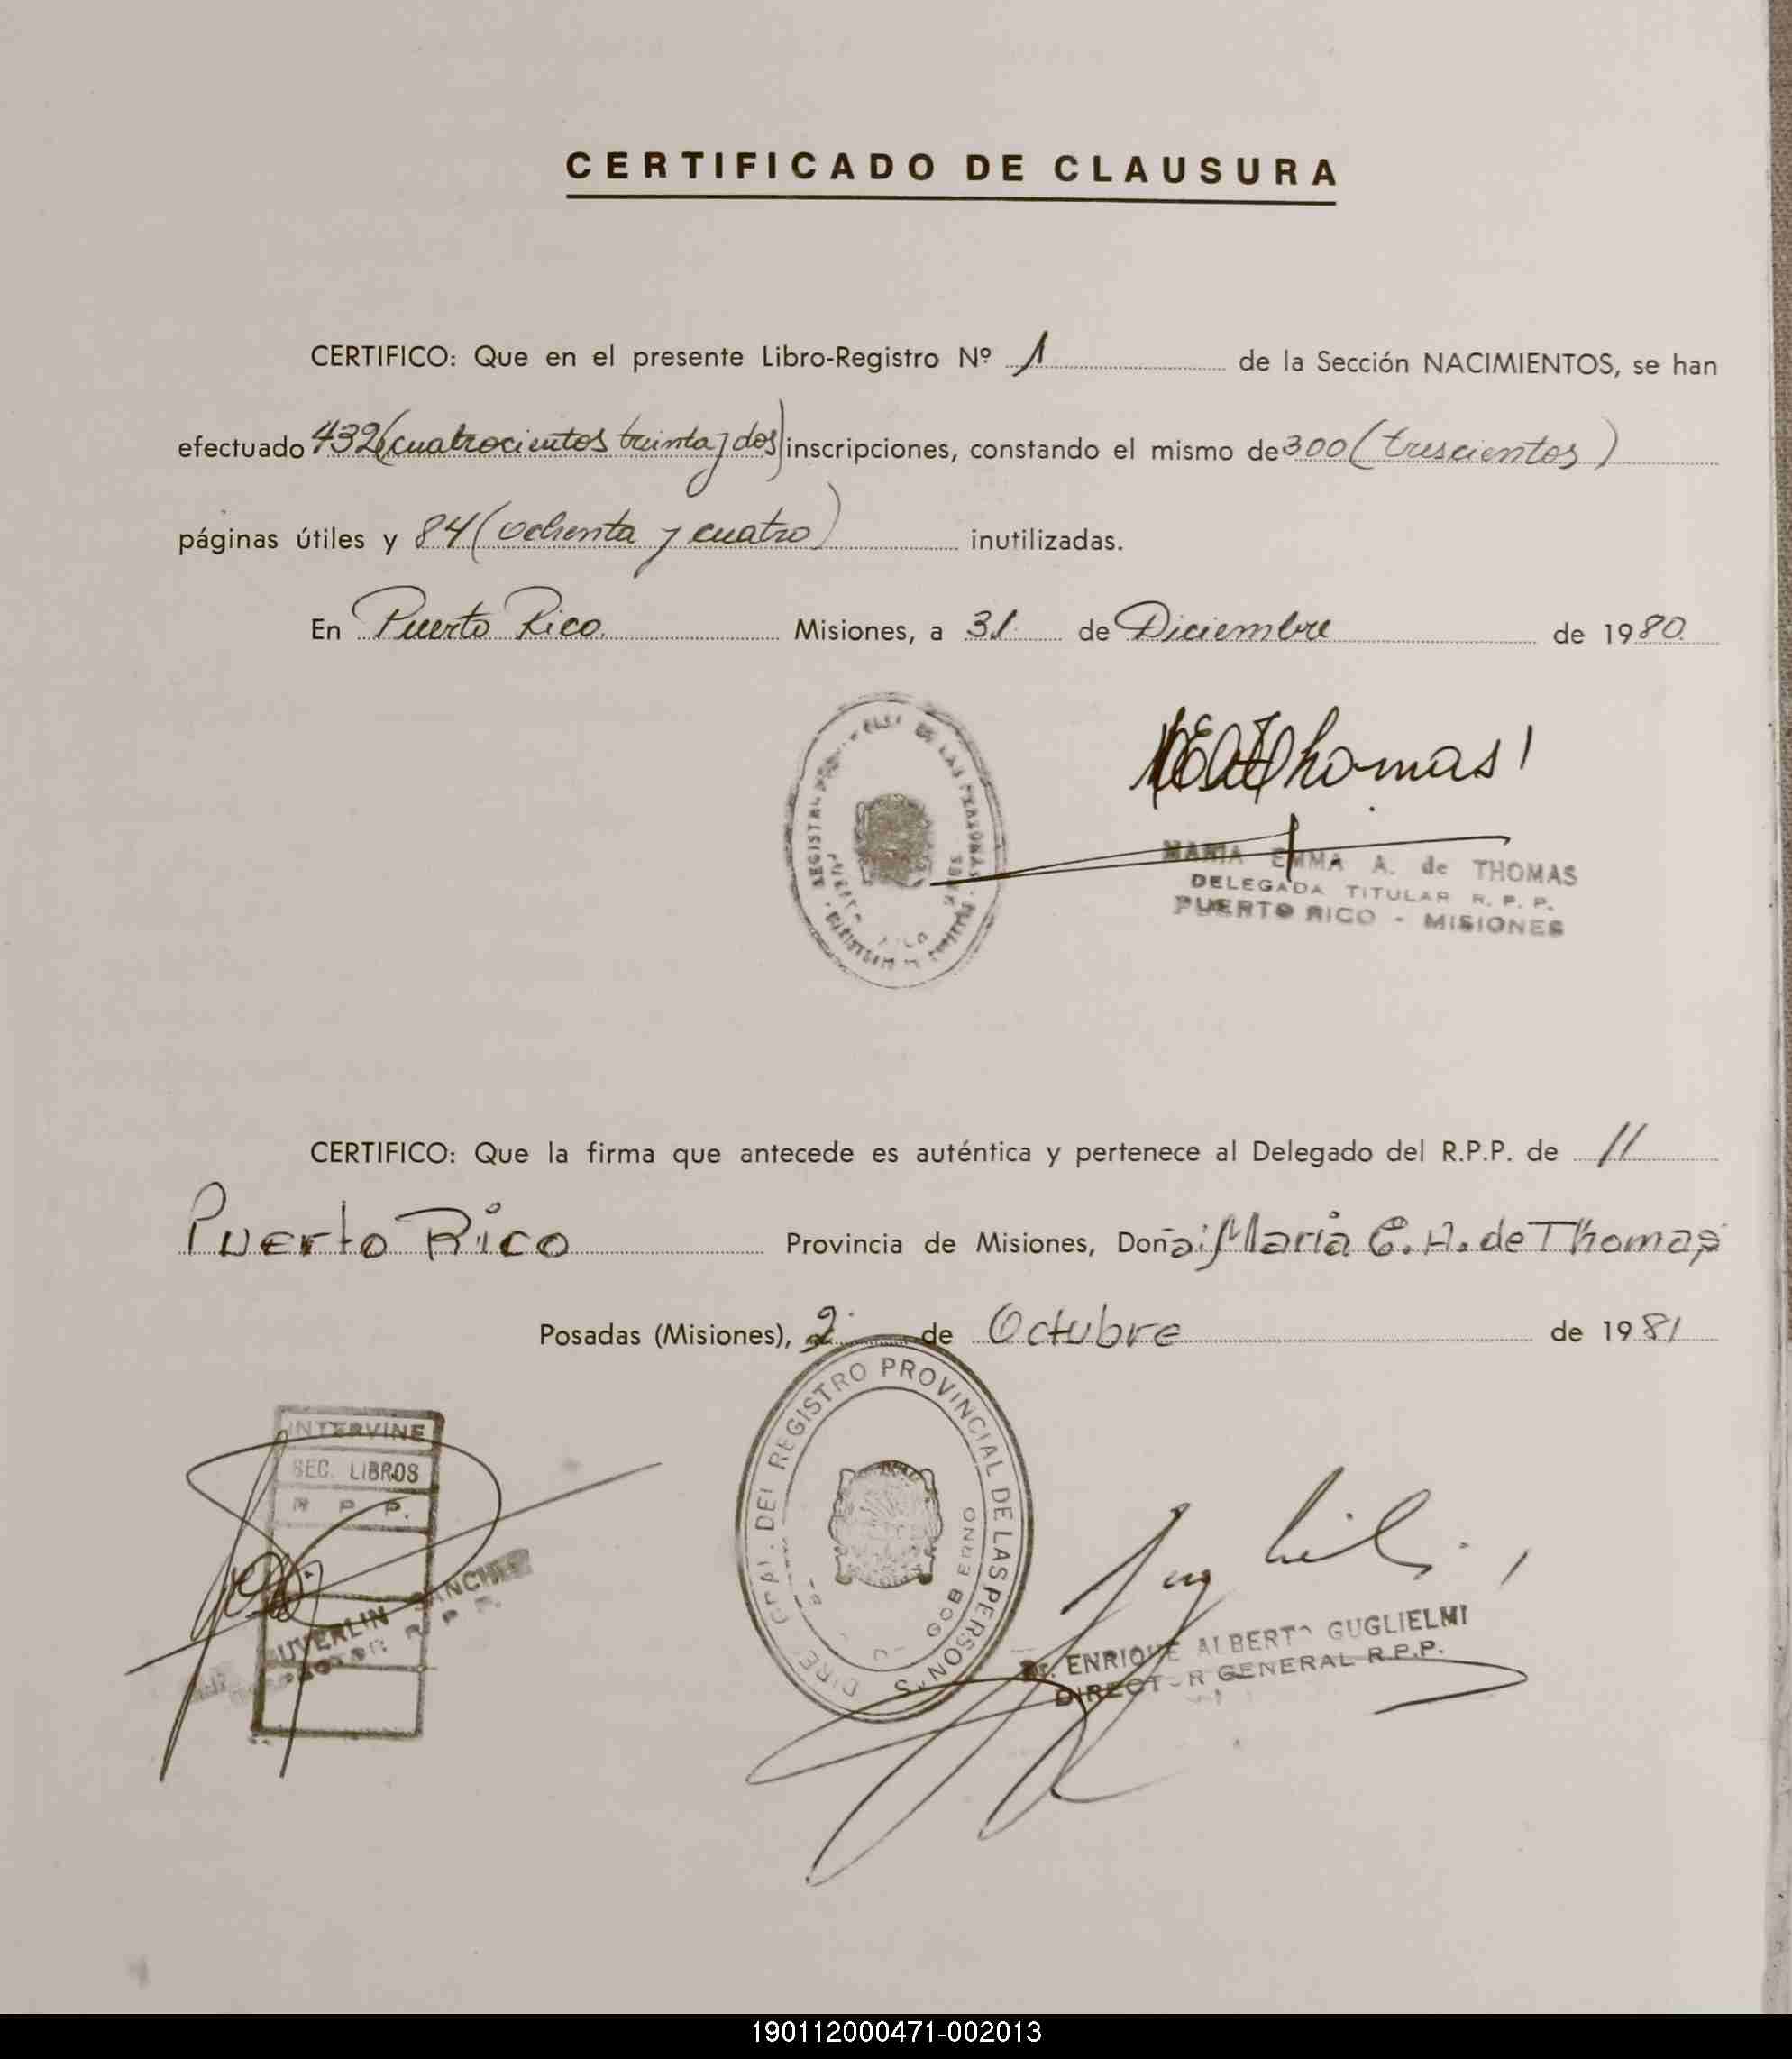 CERTIFICADO DE CLAUSURA
CERTIFICO: Que en el presente Libro-Registro Nº 1 de la Sección NACIMIENTOS, se han
efectuado 432 (cuatrocientos treinta y dos) inscripciones, constando el mismo de 300 (trescientos)
páginas útiles y 84 (ochenta y cuatro) inutilizadas.
En Puerto Rico Misiones, a 31 de Diciembre de 1980.
Thomas
MARIA EMMA A. de THOMAS
DELEGADA TITULAR R. P. P.
PUERTO RICO - MISIONES
CERTIFICO: Que la firma que antecede es auténtica y pertenece al Delegado del R.P.P. de //
Puerto Rico Provincia de Misiones, Doña: Maria E. A. de Thomas
Posadas (Misiones), 2 de Octubre de 1981
INTERVINE
SEC. LIBROS
R. P. P.
REGISTRO PROVINCIAL DE LAS PERSONAS
GOBIERNO
Dr. ENRIQUE ALBERTO GUGLIELMI
DIRECTOR GENERAL R.P.P.
190112000471-002013